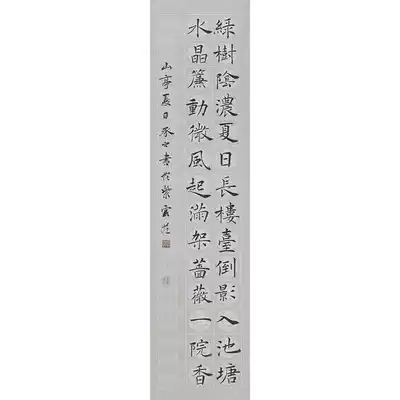 綠樹陰濃夏日長樓臺倒影入池塘
水晶簾動微風起滿架薔薇一院香
山亭夏日承之書於紫雲